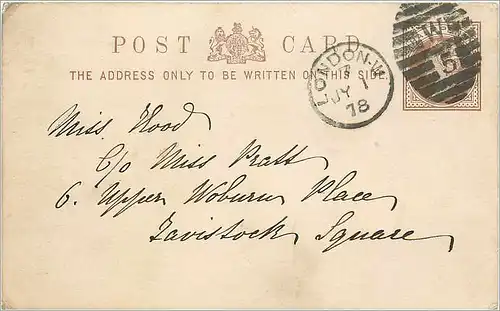 POST CARD
THE ADDRESS ONLY TO BE WRITTEN ON THIS SIDE.
LONDON.W
JY 1
78
Miss Hood
C/o Miss Pratt
6. Upper Woburn Place
Tavistock Square